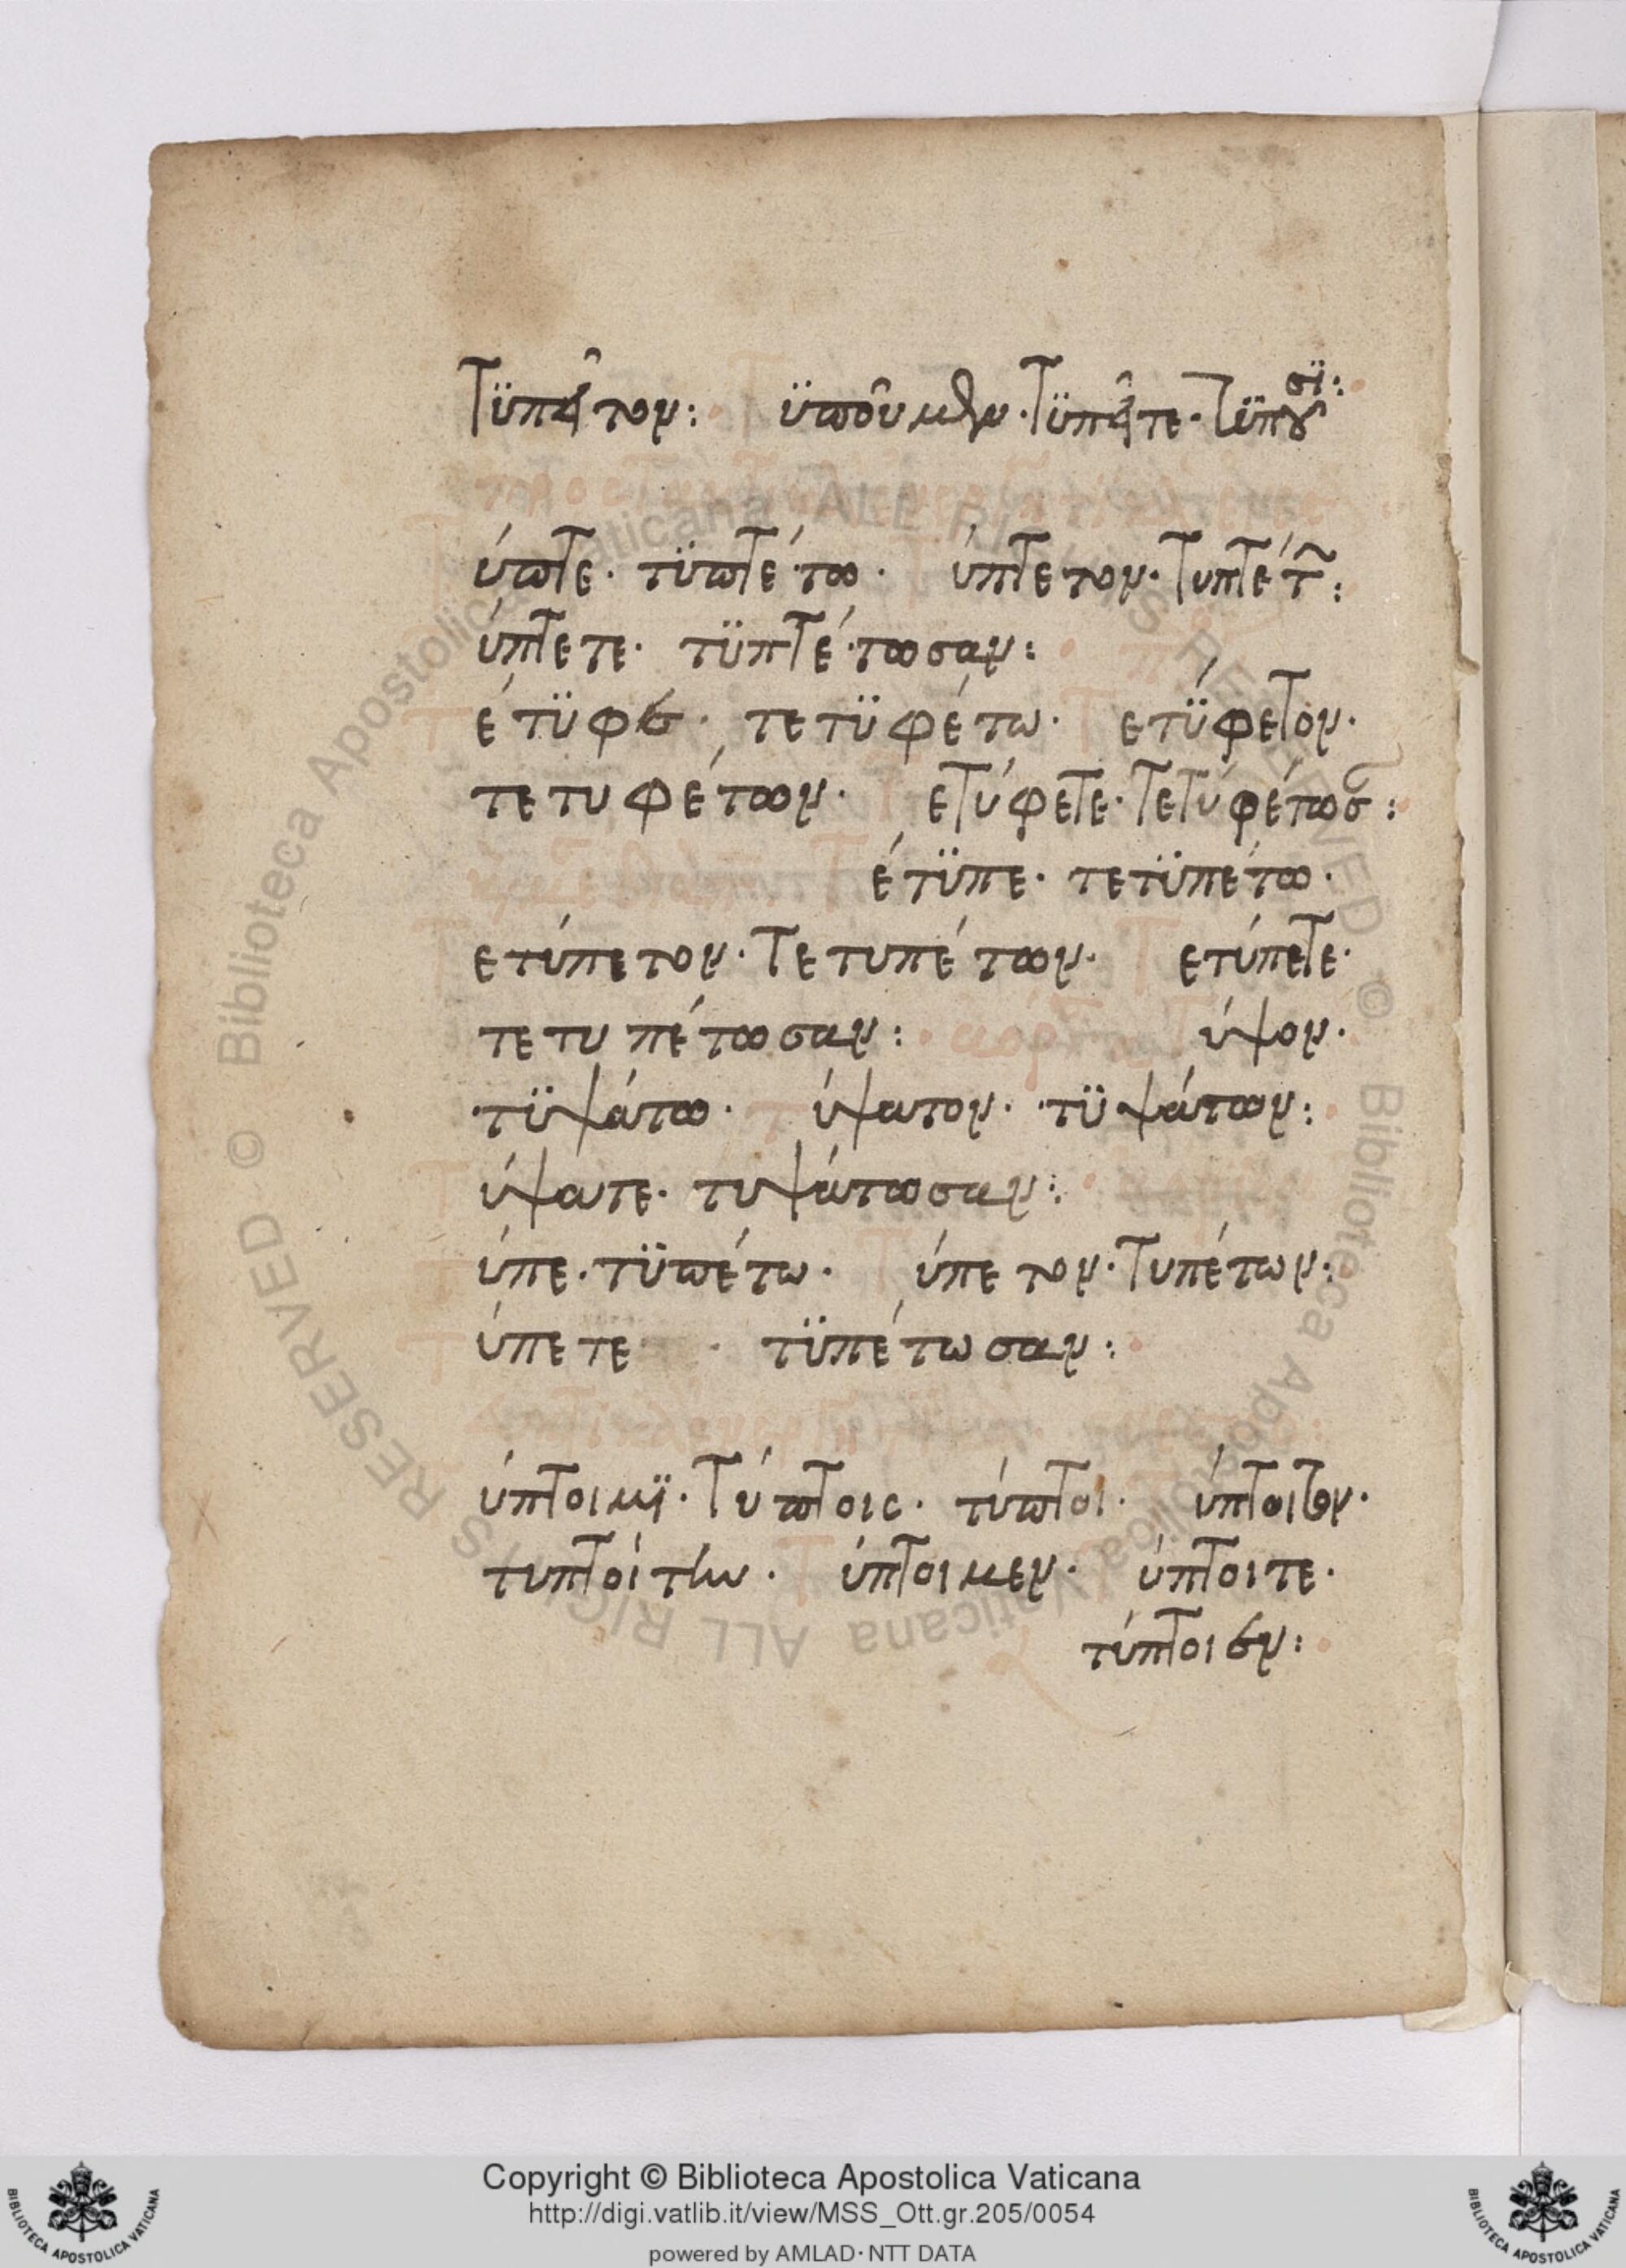 Τϋπεῖτον: ϋποῦμεν· Τϋπεῖτε· Τϋποῦσϊ:
ύπτε· τϋπτέτω· ύπτετον· Τυπτέτ:
ύπτετε· τϋπτέτωσαν:
έτϋφε· τετϋφέτω· ετΰφετον·
τετυφέτων· ετύφετε· Τετυφέτωσ:
έτϋπε· τετϋπέτω·
ετύπετον· Τετυπέτων· ετύπετε·
τετυπέτωσαν: ύψον·
τϋψάτω· ύψατον· τϋψάτων:
ύψατε· τυψάτωσαν:
ύπε· τϋπέτω· ύπετον· Τυπέτων:
ύπετε · τϋπέτωσαν:
ύπτοιμϊ· Τύπτοις· τύπτοι· ύπτοιτον·
τυπτοίτην· ύπτοιμεν· ύπτοιτε·
τύπτοιεν:
Copyright © Biblioteca Apostolica Vaticana
http://digi.vatlib.it/view/MSS_Ott.gr.205/0054
powered by AMLAD·NTT DATA
BIBLIOTECA APOSTOLICA VATICANA
BIBLIOTECA APOSTOLICA VATICANA
© Biblioteca Apostolica Vaticana ALL RIGHTS RESERVED © Biblioteca Apostolica Vaticana ALL RIGHTS RESERVED